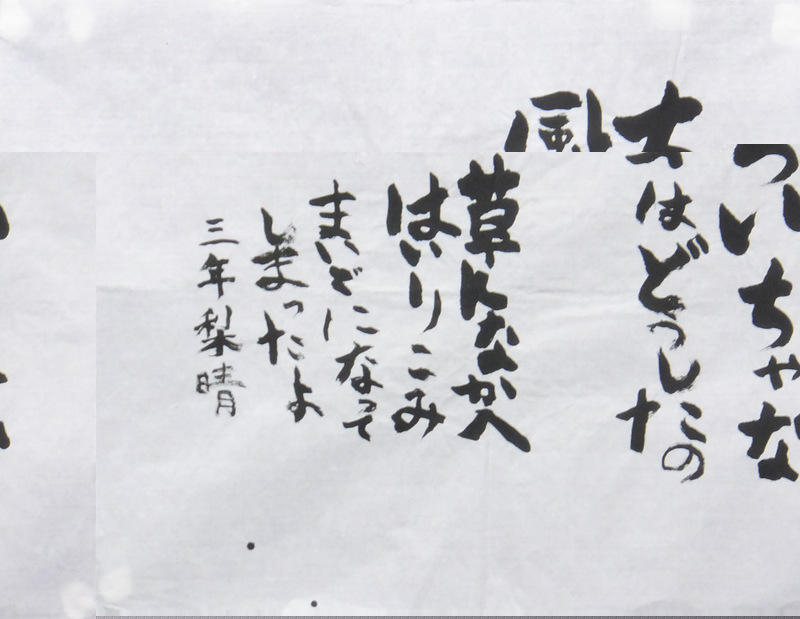 ちゃ
はどうしたの
風
草んなかへ
はいりこみ
まいごになって
しまったよ
三年 梨晴